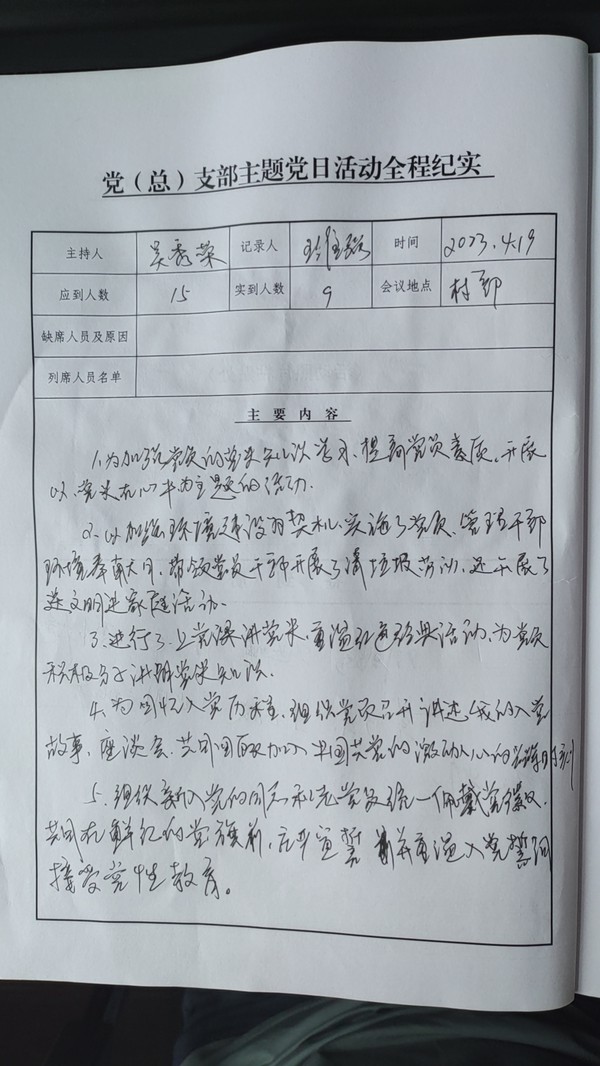 党（总）支部主题党日活动全程纪实
主持人 吴秀荣 记录人 时间 2023.4.19
应到人数 15 实到人数 9 会议地点 村部
缺席人员及原因
列席人员名单
主要内容
1.为加强党员的党史知识学习、提高党员素质。开展
以、党史在心中为主题的活动.
2.以加强环境建设为契机、实施了党员、管理干部
环境奉献月、带领党员干部开展了清垃圾劳动、还开展了
送文明进家庭活动.
3.进行了.上党课讲党史、重温红色经典活动、为党员
积极分子讲解党史知识.
4.为回忆入党历程、组织党员召开讲述《我的入党
故事》座谈会.共同回顾加入中国共产党的激动人心的时刻
5.组织新入党的同志和老党员统一佩戴党徽.
共同在鲜红的党旗前,庄严宣誓 并重温入党誓词
接受党性教育。